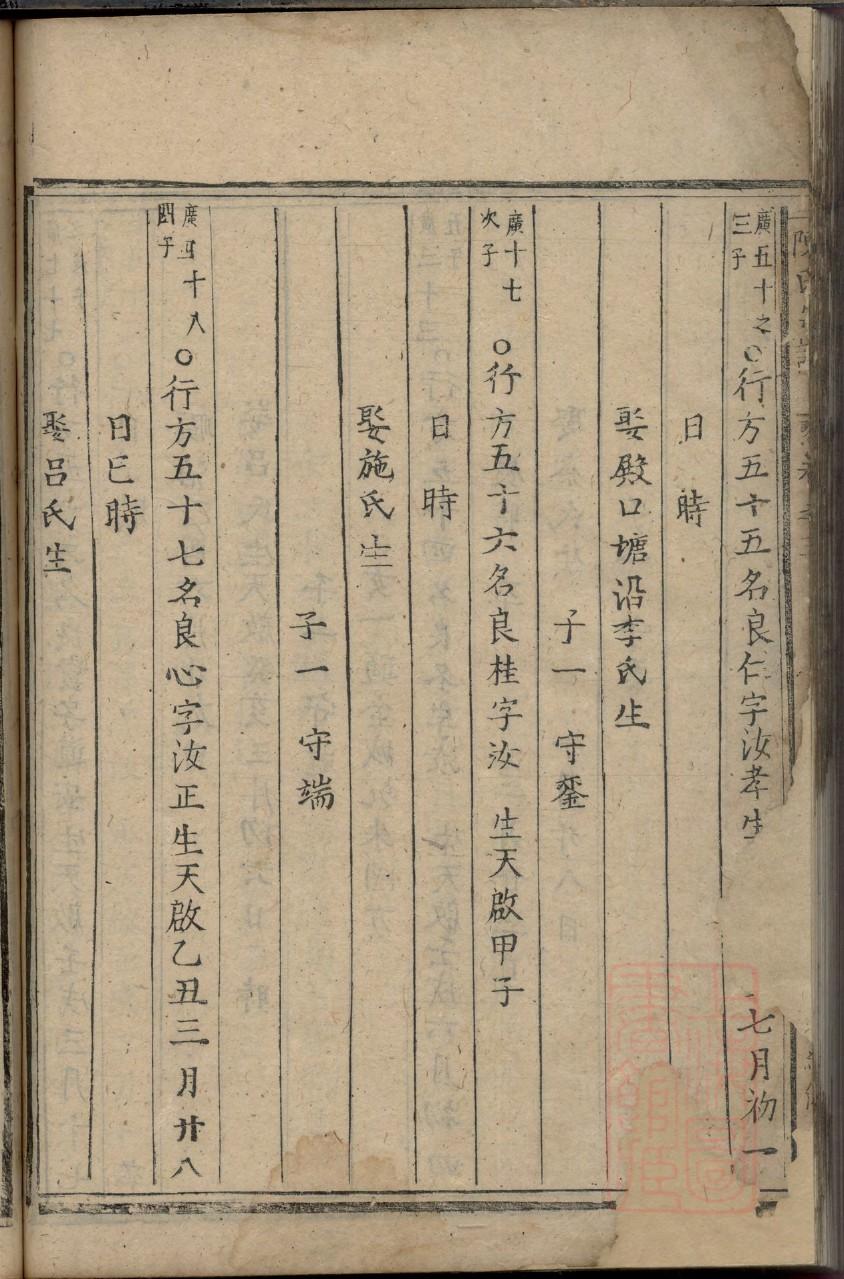 廣五十之
三子
○行方五十五名良仁字汝孝生 七月初一
日 時
娶殿口塘沿李氏生
子一 守銮
廣十七
次子
○行方五十六名良桂字汝 生天啟甲子
日 時
娶施氏生
子一 守端
廣四十八
四子
○行方五十七名良心字汝正生天啟乙丑三月廿八
日巳時
娶呂氏生